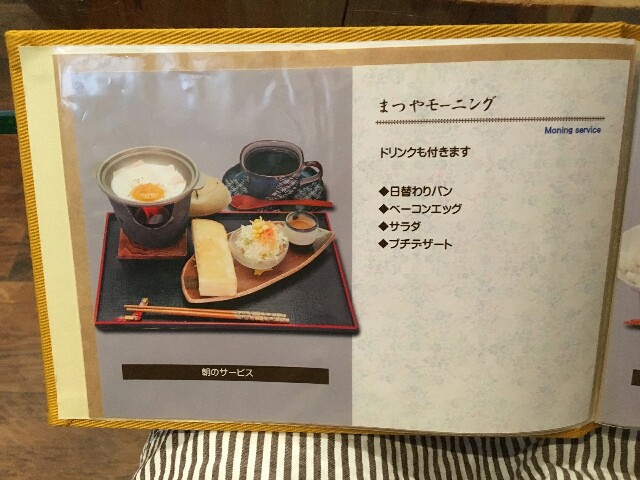 まつやモーニング
Moning service
ドリンクも付きます
◆日替わりパン
◆ベーコンエッグ
◆サラダ
◆プチデザート
朝のサービス